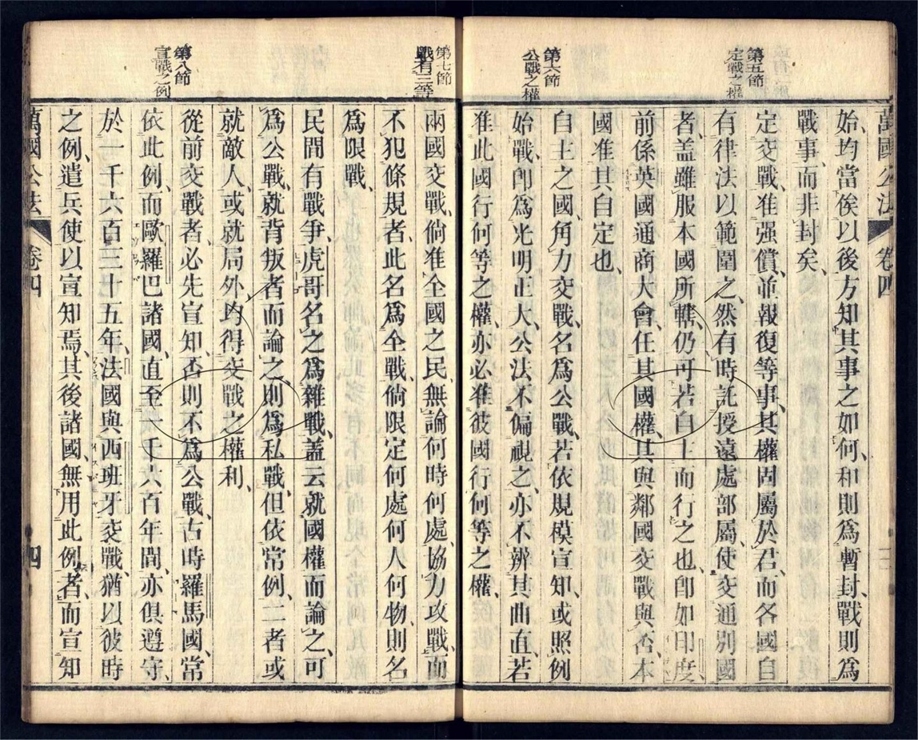 萬國公法 卷四
始、均當俟以後方知其事之如何、和則爲暫封、戰則爲
戰事、而非封矣、
第五節
定戰之權
定交戰、准强償、並報復等事、其權固屬於君、而各國自
有律法以範圍之、然有時託授遠處部屬、使交通別國
者、蓋雖服本國所轄、仍可若自主而行之也、卽如印度、
前係英國通商大會、任其國權、其與鄰國交戰與否、本
國准其自定也、
第六節
公戰之權
自主之國、角力交戰、名爲公戰、若依規模宣知、或照例
始戰、卽爲光明正大、公法不偏視之、亦不辨其曲直、若
准此國行何等之權、亦必准彼國行何等之權、
第七節
戰有三等
兩國交戰、倘准全國之民、無論何時何處、協力攻戰、而
不犯條規者、此名爲全戰、倘限定何處何人何物、則名
爲限戰、
民間有戰爭、虎哥名之爲雜戰、蓋云、就國權而論之、可
爲公戰、就背叛者而論之、則爲私戰、但依常例、二者或
就敵人、或就局外、均得交戰之權利、
第八節
宣戰之例
從前交戰者、必先宣知、否則不爲公戰、古時羅馬國、常
依此例、而歐羅巴諸國、直至一千六百年間、亦俱遵守、
於一千六百三十五年、法國與西班牙交戰、猶以彼時
之例、遣兵使以宣知焉、其後諸國無用此例者、而宣知
萬國公法 卷四 四